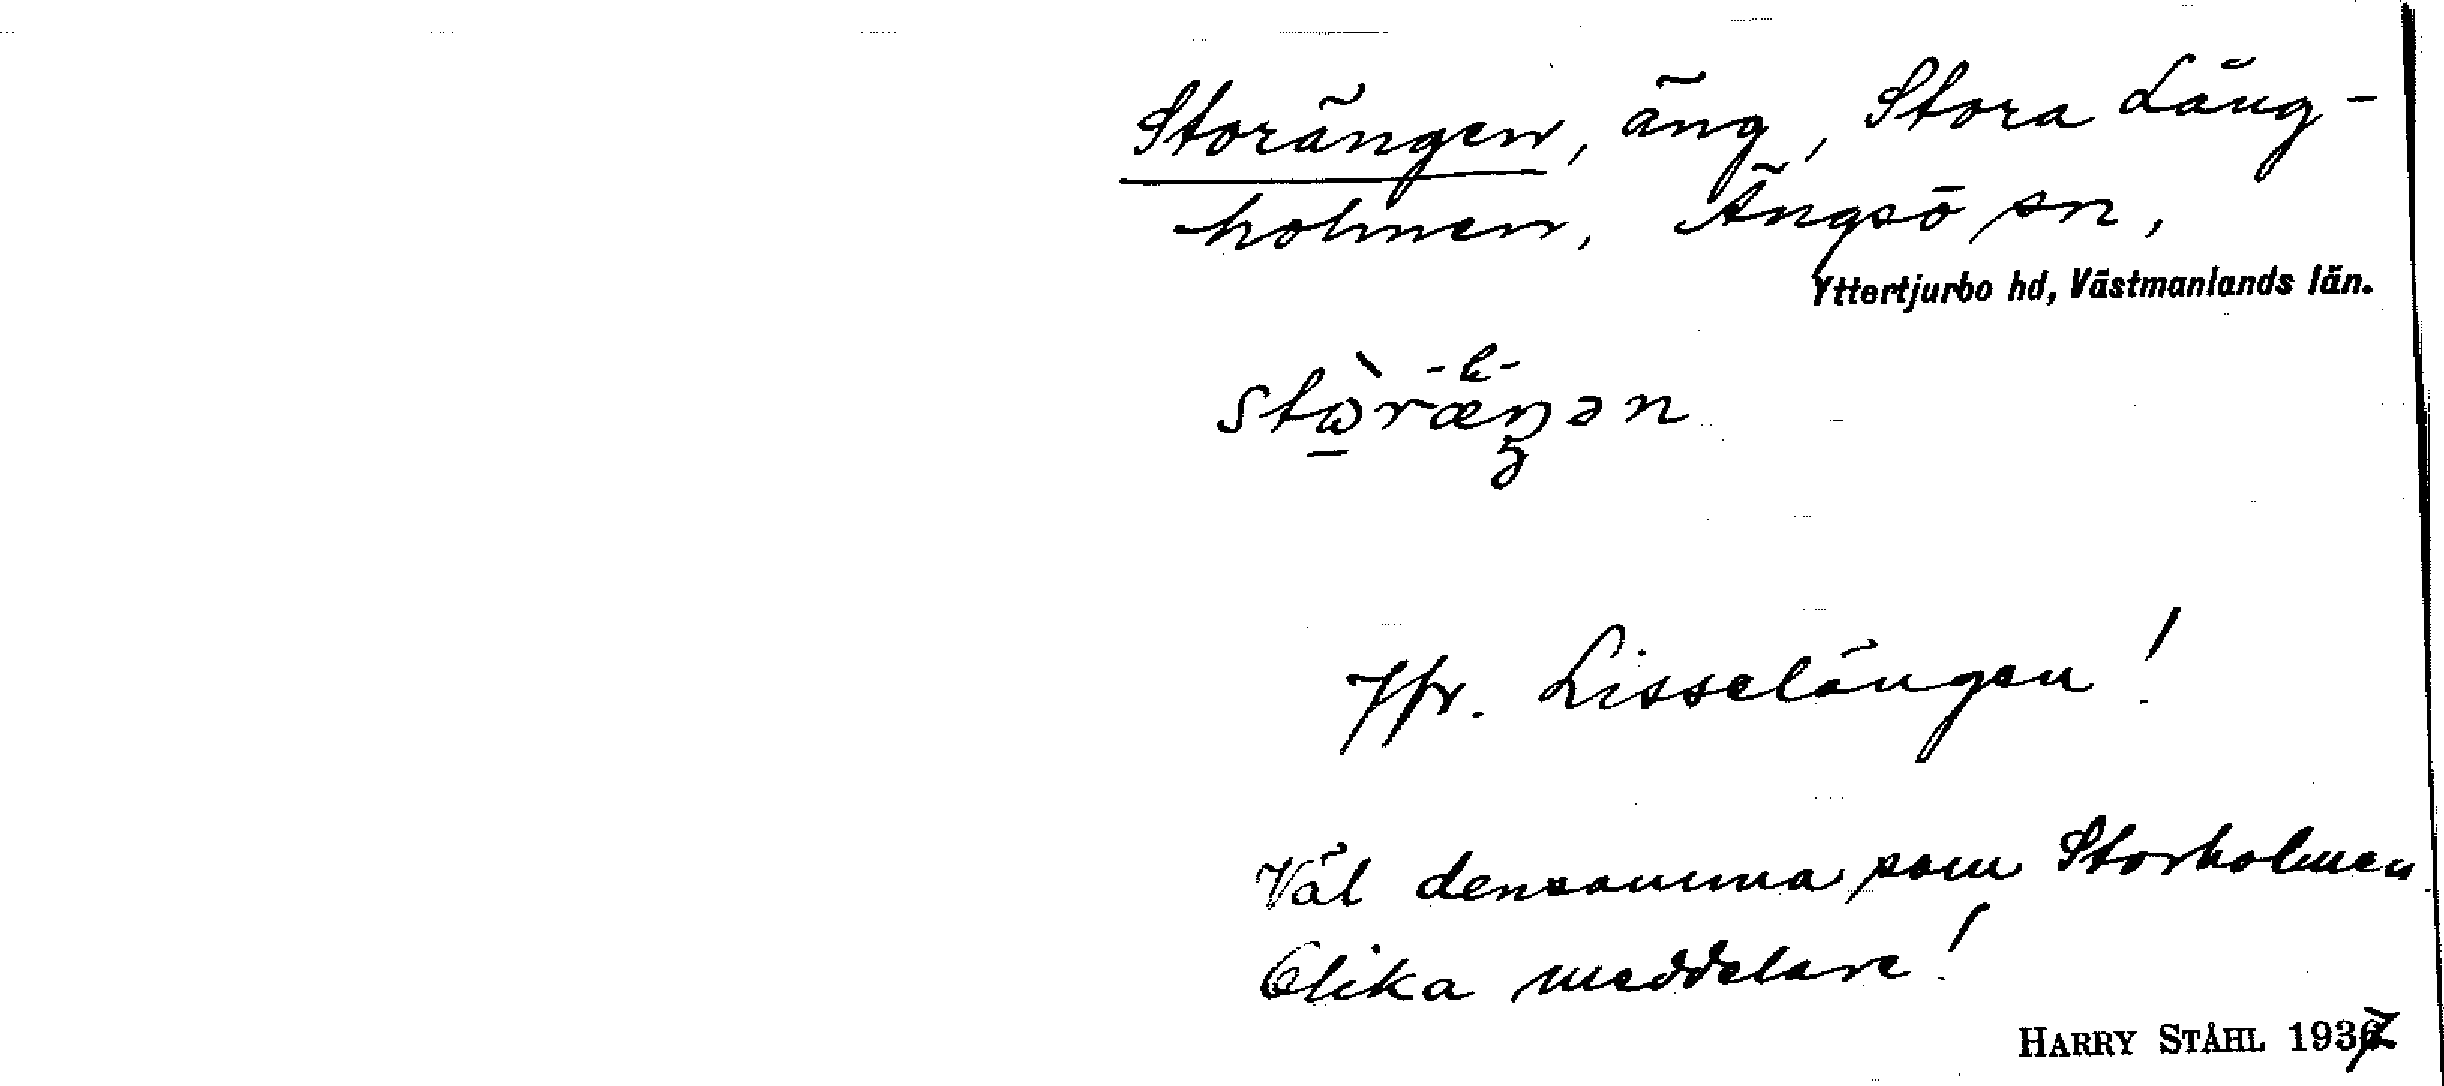 Storängen, äng, Stora Lång-
holmen, Ängsö sn,
Yttertjurbo hd, Västmanlands län.
-e-
stὼ̠ræŋən
Jfr. Lisselängen!
Väl densamma som Storholmen
Olika meddelare!
HARRY STÅHL 1937